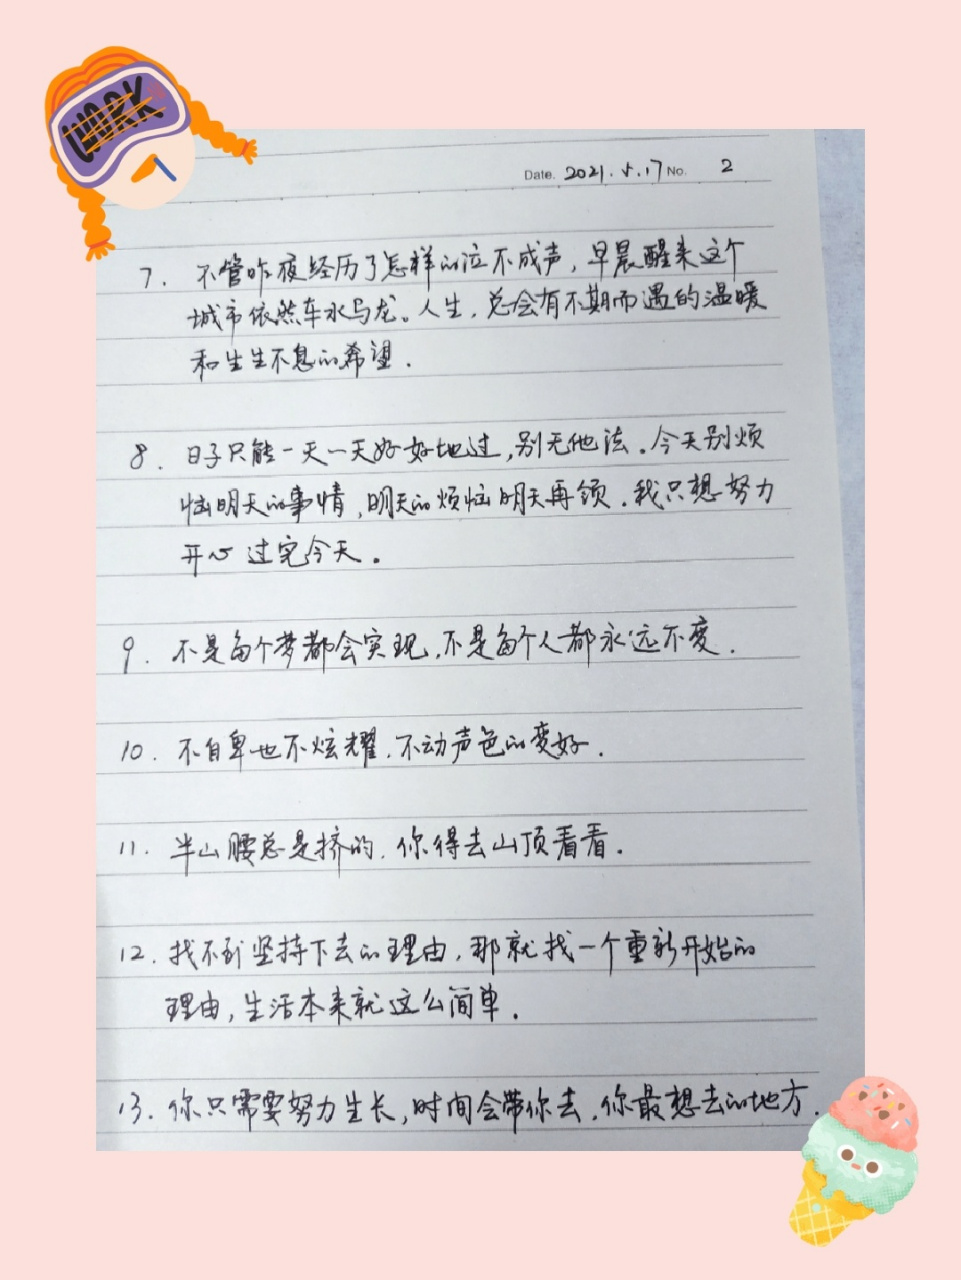 WORK
Date. 2021.5.17 No. 2
7. 不管昨夜经历了怎样的泣不成声，早晨醒来这个
城市依然车水马龙。人生，总会有不期而遇的温暖
和生生不息的希望.
8. 日子只能一天一天好好地过，别无他法.今天别烦
恼明天的事情，明天的烦恼明天再领.我只想努力
开心过完今天。
9. 不是每个梦都会实现,不是每个人都永远不变.
10. 不自卑也不炫耀.不动声色的变好.
11. 半山腰总是挤的.你得去山顶看看.
12. 找不到坚持下去的理由,那就找一个重新开始的
理由,生活本来就这么简单.
13. 你只需要努力生长,时间会带你去.你最想去的地方.